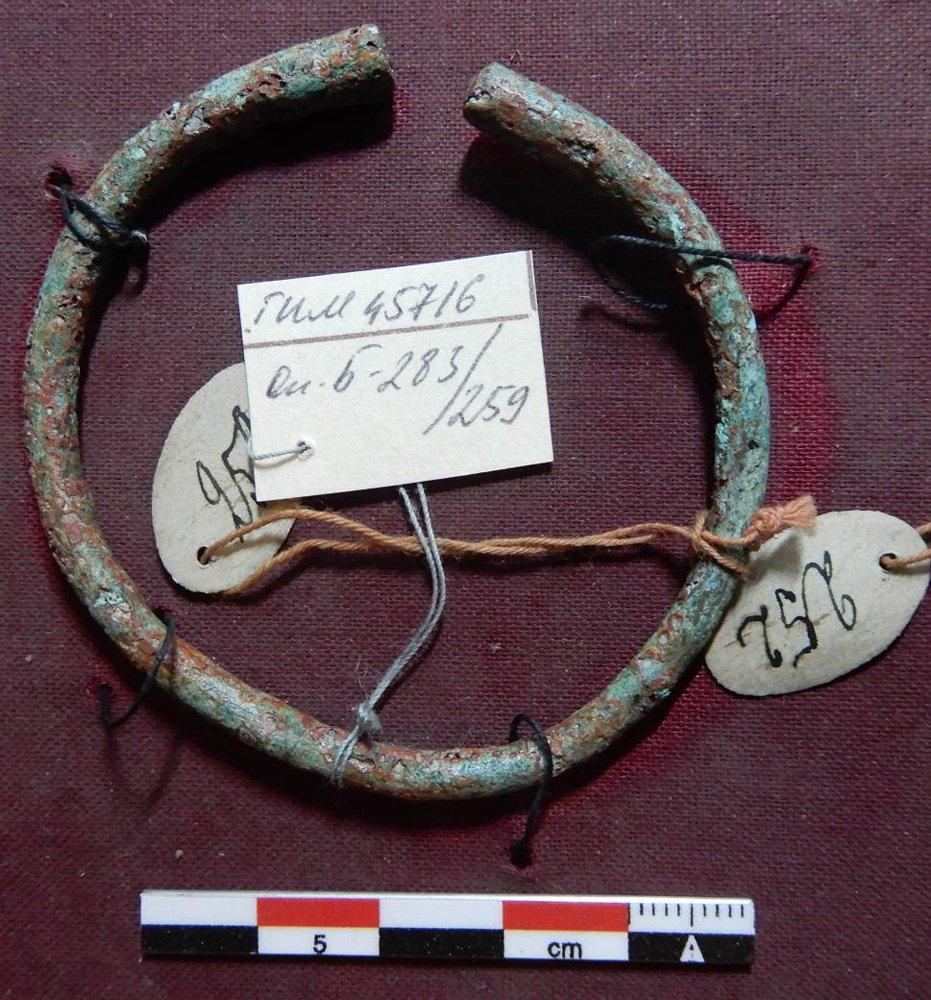 ГИМ 45716
оп. Б-283/
/259
252
5 cm A